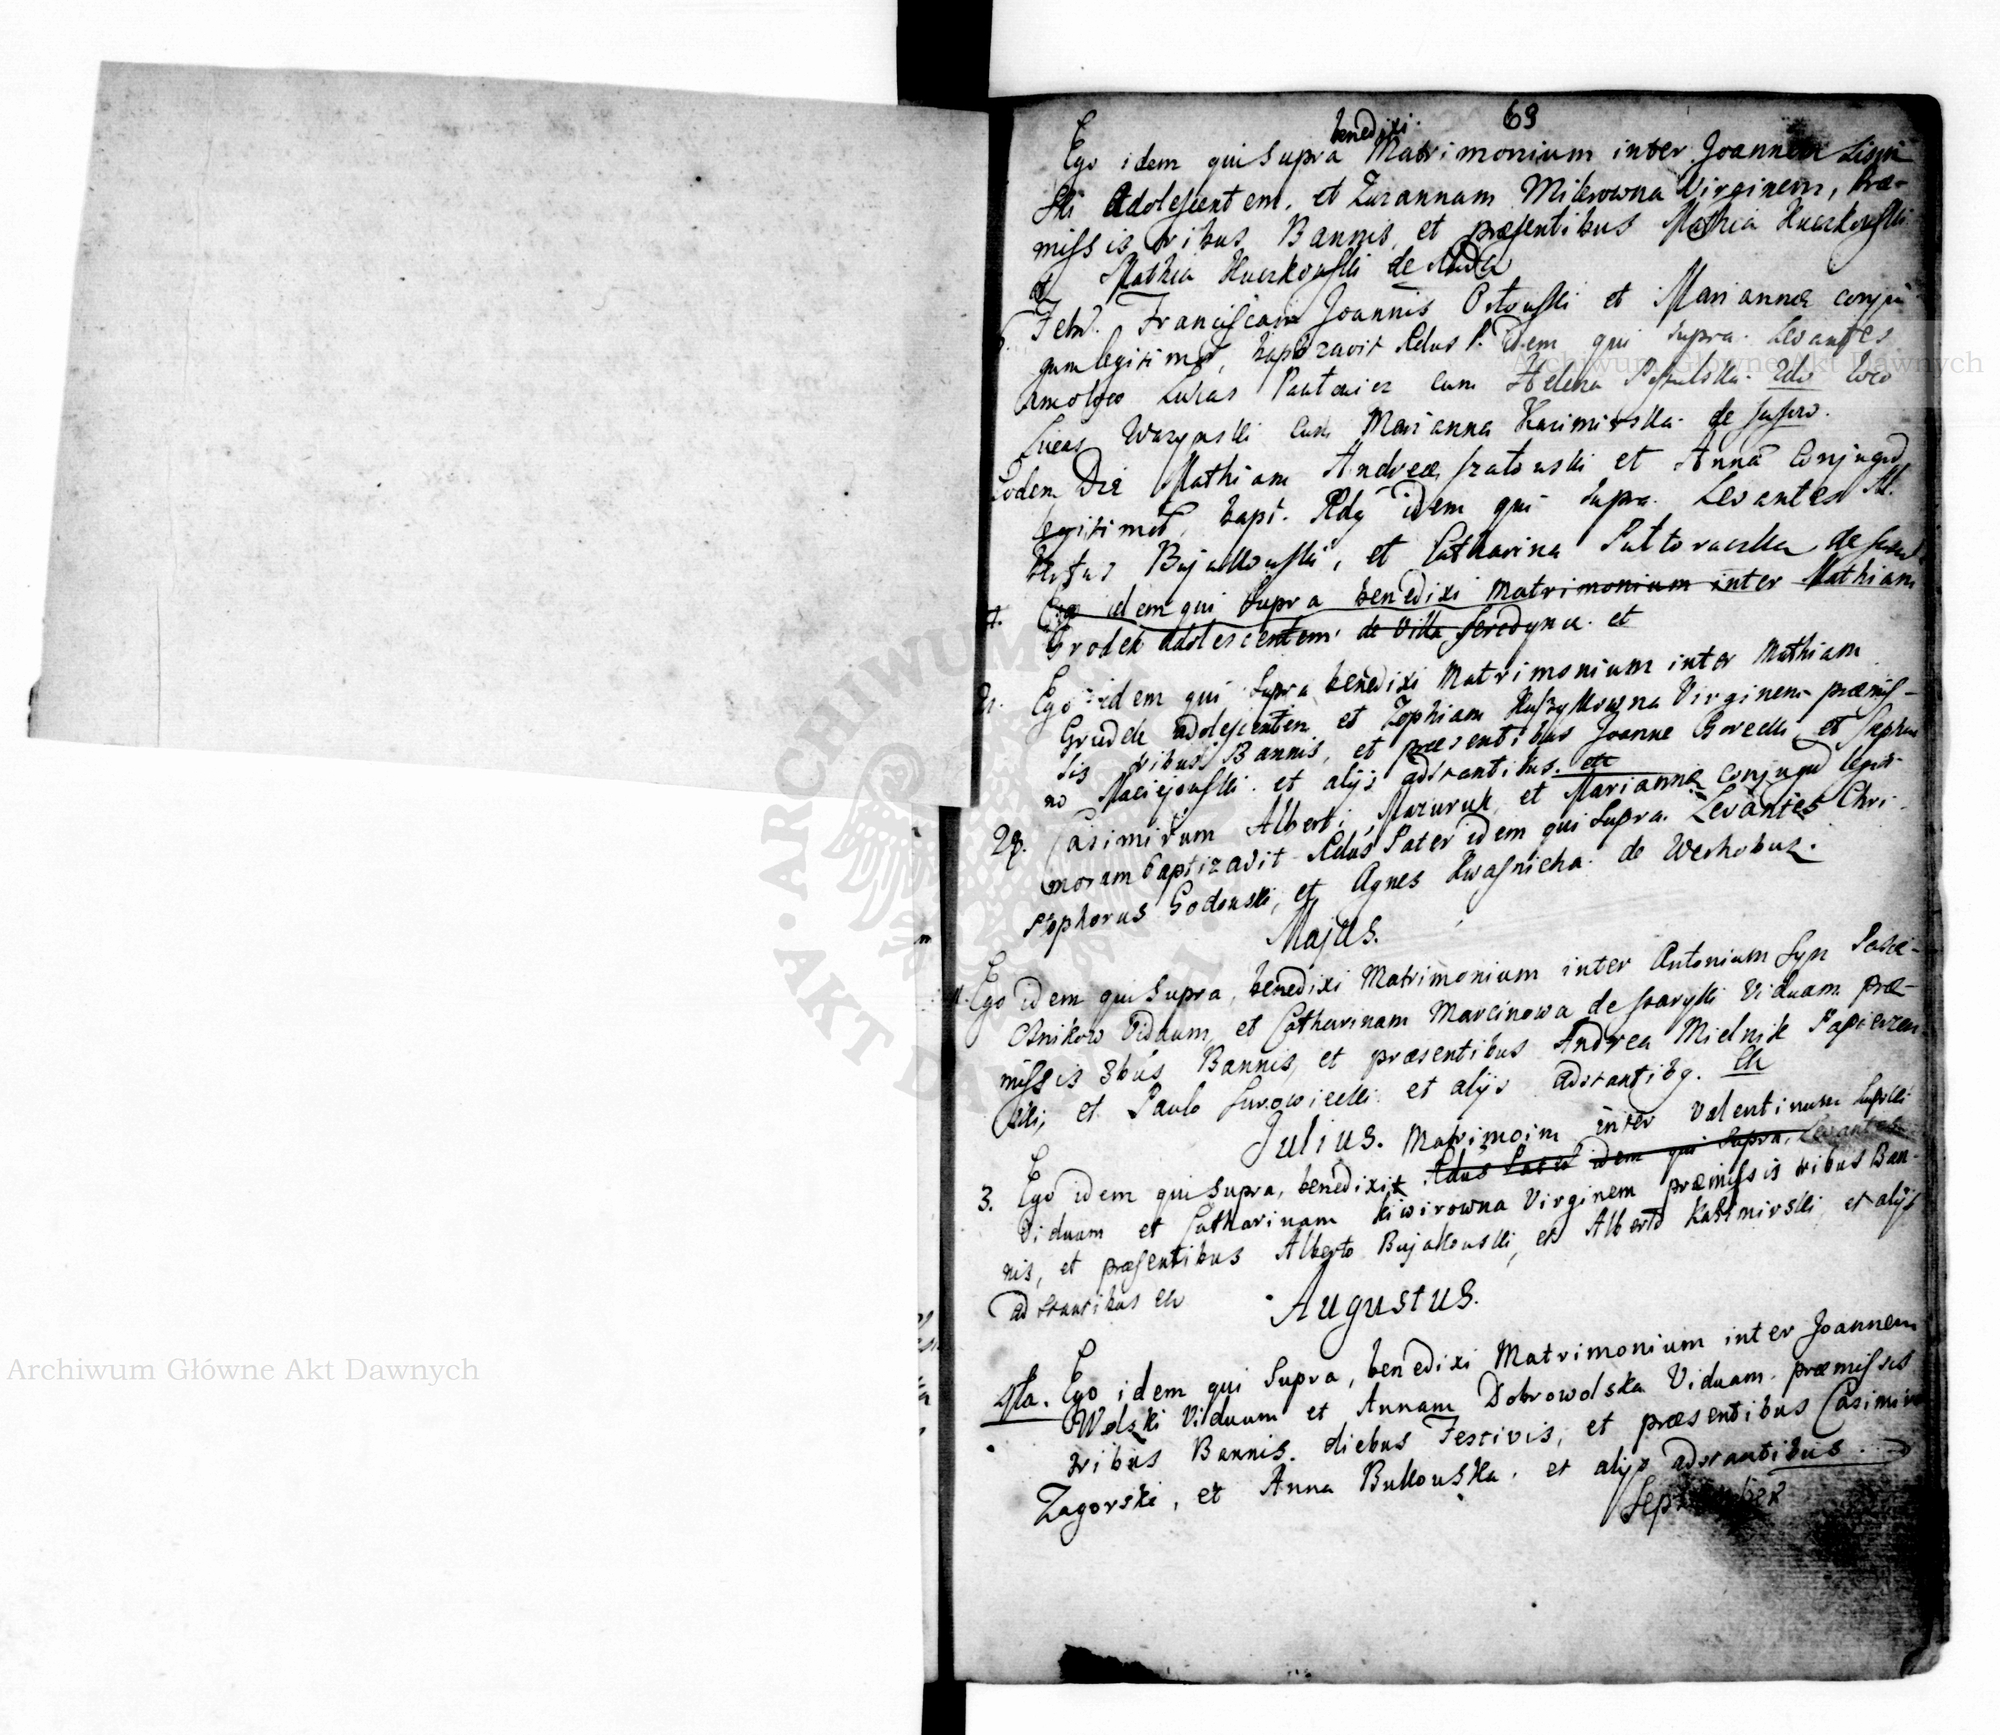 63
benedixi
Ego idem qui Supra Matrimonium inter Joannem
ski Adolescentem, et Zuzannam Mikrowna Virginem, Præ-
missis tribus Bannis, et præsentibus Mathia Kuczkowski
et Mathia Kuczkowski de Ruda
Febr. Franciscam Joannis Ostowski et Marianna conju
gum legitimor, baptizavit Rdus P. idem qui supra. Levantes
Lucas cum Helena
Lucas Wazynski cum Marianna Kazimirska de
Eodem Die Mathiam Andreæ et Anna Conjugum
legitimor, bapt. Rdg idem qui Supra. Levantes Al-
bertus Bujakowski, et Catharina de
Ego idem qui Supra benedixi Matrimonium inter Mathiam
Grodek Adolescentem de Villa Seredyna et
21. Ego idem qui Supra benedixi Matrimonium inter Mathiam
Grudek adolescentem et Zophiam Virginem præmis-
sis tribus Bannis, et præsentibus Joanne Gorecki et Stepha
no Maciejowski et alijs adstantibus. etc
28. Casimirum Alberti Mazuruk et Marianna conjugu legit-
morum baptizavit Rdus Pater idem qui Supra. Levantes Chri-
stophorus Godowski, et Agnes Kwasnicha de Werhobuz.
Majus.
Ego idem qui Supra, benedixi Matrimonium inter Antonium Syn
Viduum, et Catharinam Marcinowa de Viduam præ-
missis 3bus Bannis, et præsentibus Andrea Mielnik
ski, et Paulo Surowiecki et alijs adstantibq. etc
Julius. Matrimoim inter Valentinum
3. Ego idem qui Supra, benedixit Rdus Pater idem qui Supra, Levantes
Viduum et Catharinam Kiwirowna Virginem præmissis tribus Ban-
nis, et præsentibus Alberto Bujakowski, et Alberto Kazimirski, et alijs
adstantibus etc
Augustus.
4ta. Ego idem qui Supra, benedixi Matrimonium inter Joannem
Wolski Viduum et Annam Dobrowolska Viduam. præmissis
tribus Bannis. diebus Festivis, et præsentibus Casimiro
Zagorski, et Anna Bukowska, et alijs adstantibus
September
Archiwum Główne Akt Dawnych
Archiwum Główne Akt Dawnych
ARCHIWUM GŁÓWNE AKT DAWNYCH